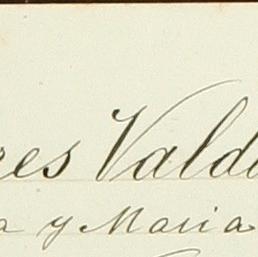 res Vald
a y Maria